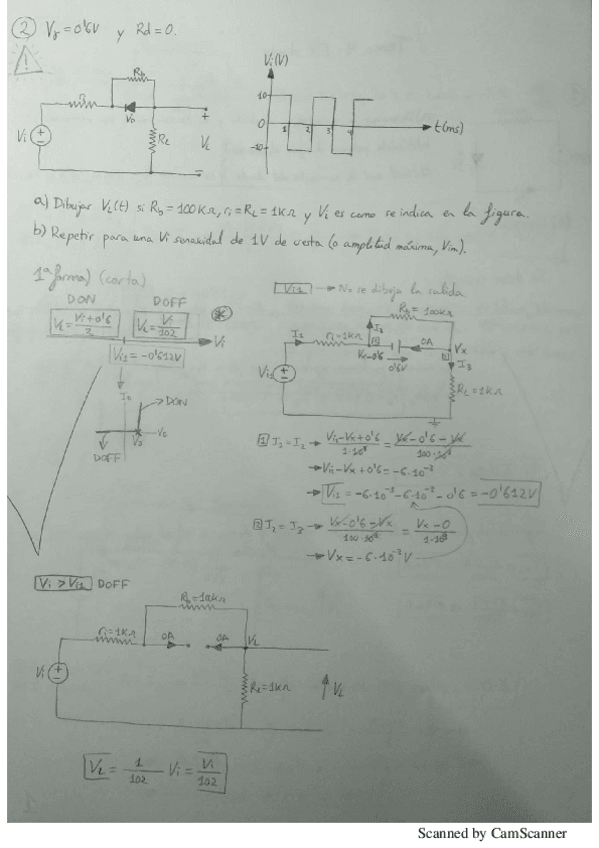 ② Vγ = 0'6V y Rd = 0.
Rb
ri
VD
Vi
RL
VL
Vi(V)
10
0
-10
1 2 3 4
t(ms)
a) Dibujar VL(t) si Rb = 100KΩ, ri = RL = 1KΩ y Vi es como se indica en la figura.
b) Repetir para una Vi senoidal de 1V de cresta (o amplitud máxima, Vim).
1ª forma) (corta)
DON DOFF
VL = Vi+0'6/2
VL = Vi/102
Vi
Vi1 = -0'612V
ID
DON
VD
Vγ
DOFF
Vi1 → No se dibuja la salida
Rb = 100KΩ
I1 ri=1KΩ
I2
1
Vx-0'6
0'6V
0A
2
Vx
I3
Vi1
RL=1KΩ
1 I1 = I2 → Vi1-Vx+0'6/1·10³ = Vx-0'6-Vx/100·10³
→ Vi1-Vx+0'6 = -6·10⁻³
→ Vi1 = -6·10⁻³-6·10⁻³-0'6 = -0'612V
2 I2 = I3 → Vx-0'6-Vx/100·10³ = Vx-0/1·10³
→ Vx = -6·10⁻³V
Vi > Vi1 DOFF
Rb=100KΩ
ri=1KΩ
0A
0A
VL
Vi
RL=1KΩ
VL
VL = 1/102 Vi = Vi/102
Scanned by CamScanner